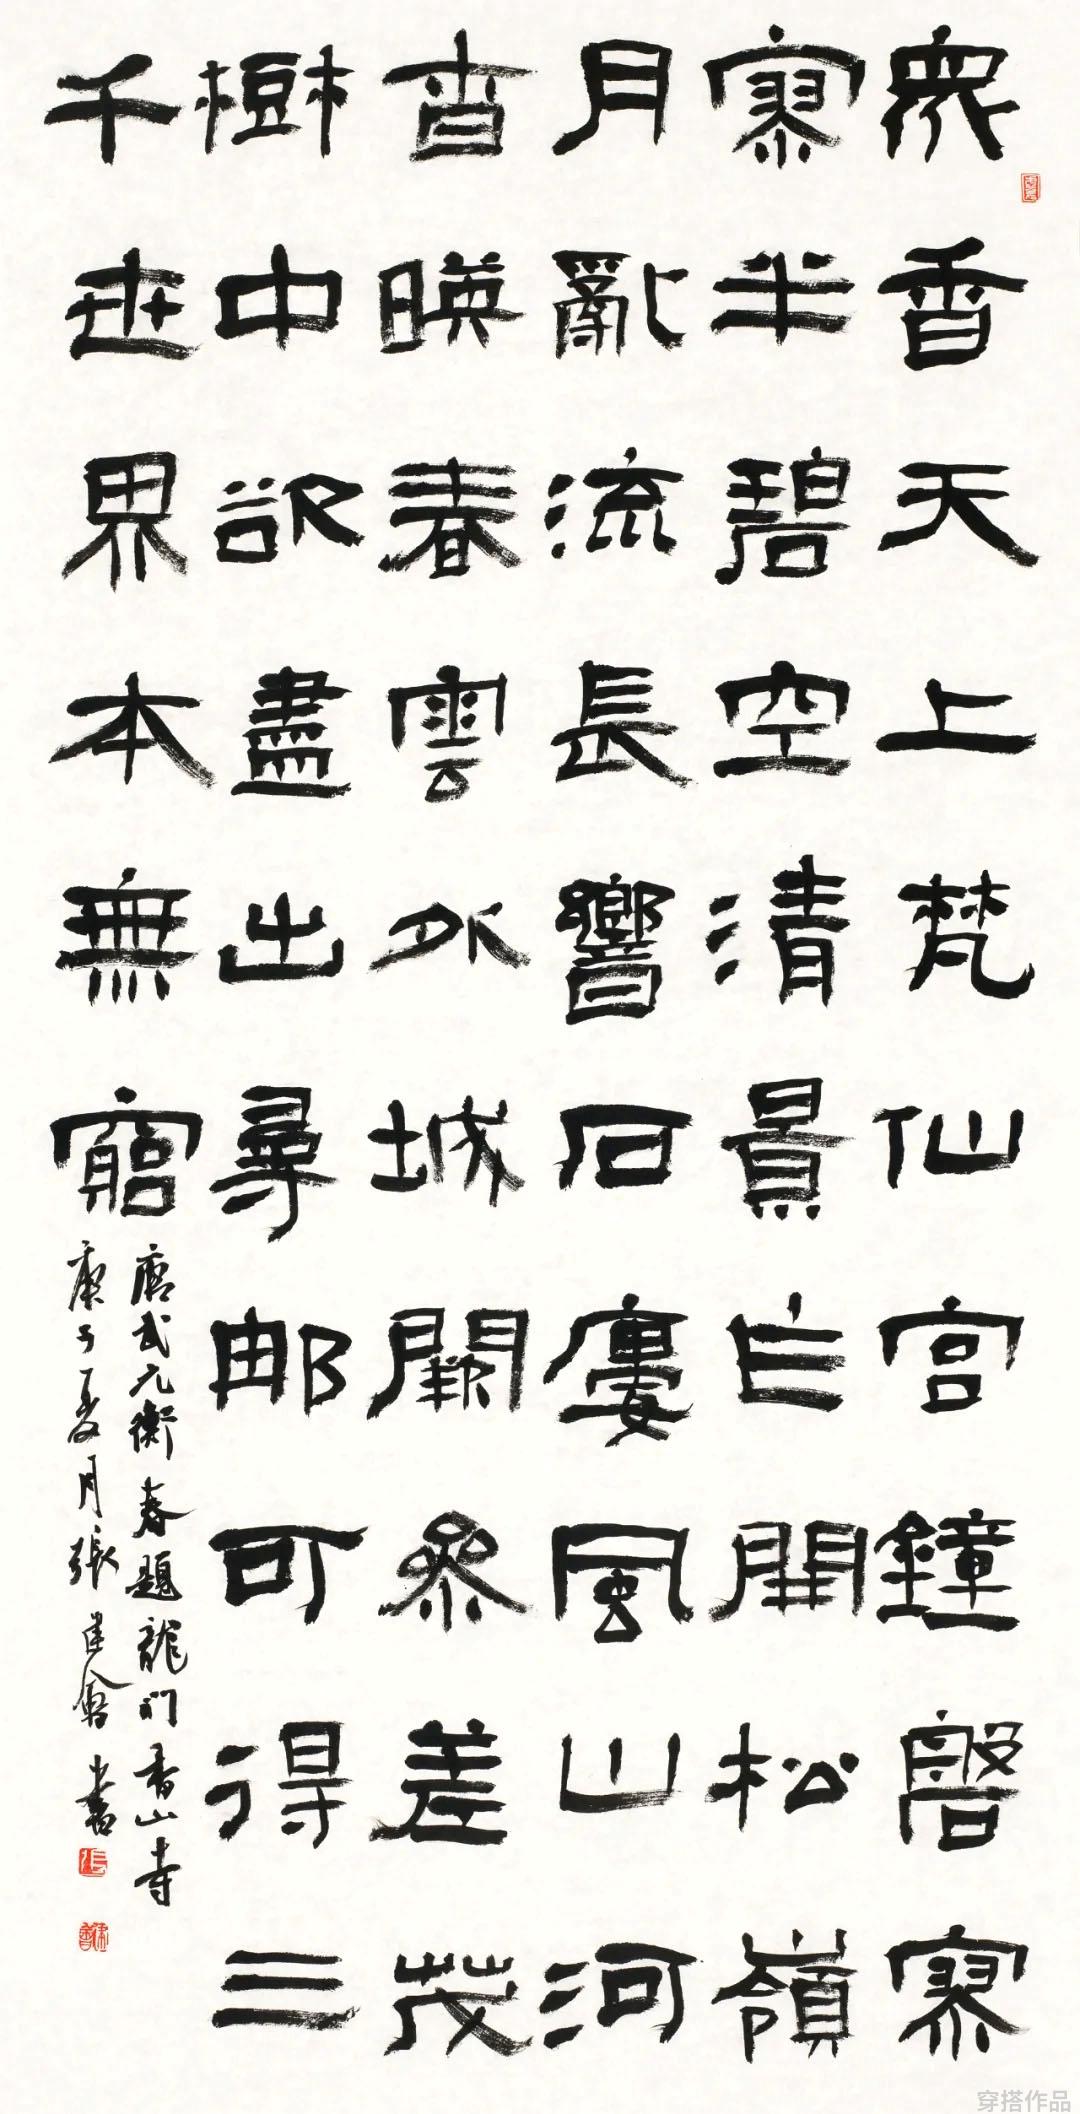 衆香天上梵仙宮鐘磬寥
寥半碧空清景㠯開松嶺
月亂流長響石廔風山河
杳映春雲外城闕參差茂
樹中欲盡出尋邮可得三
千世界本無窮
唐武元衡春題龍門香山寺
庚子夏月張建會書
穿搭作品